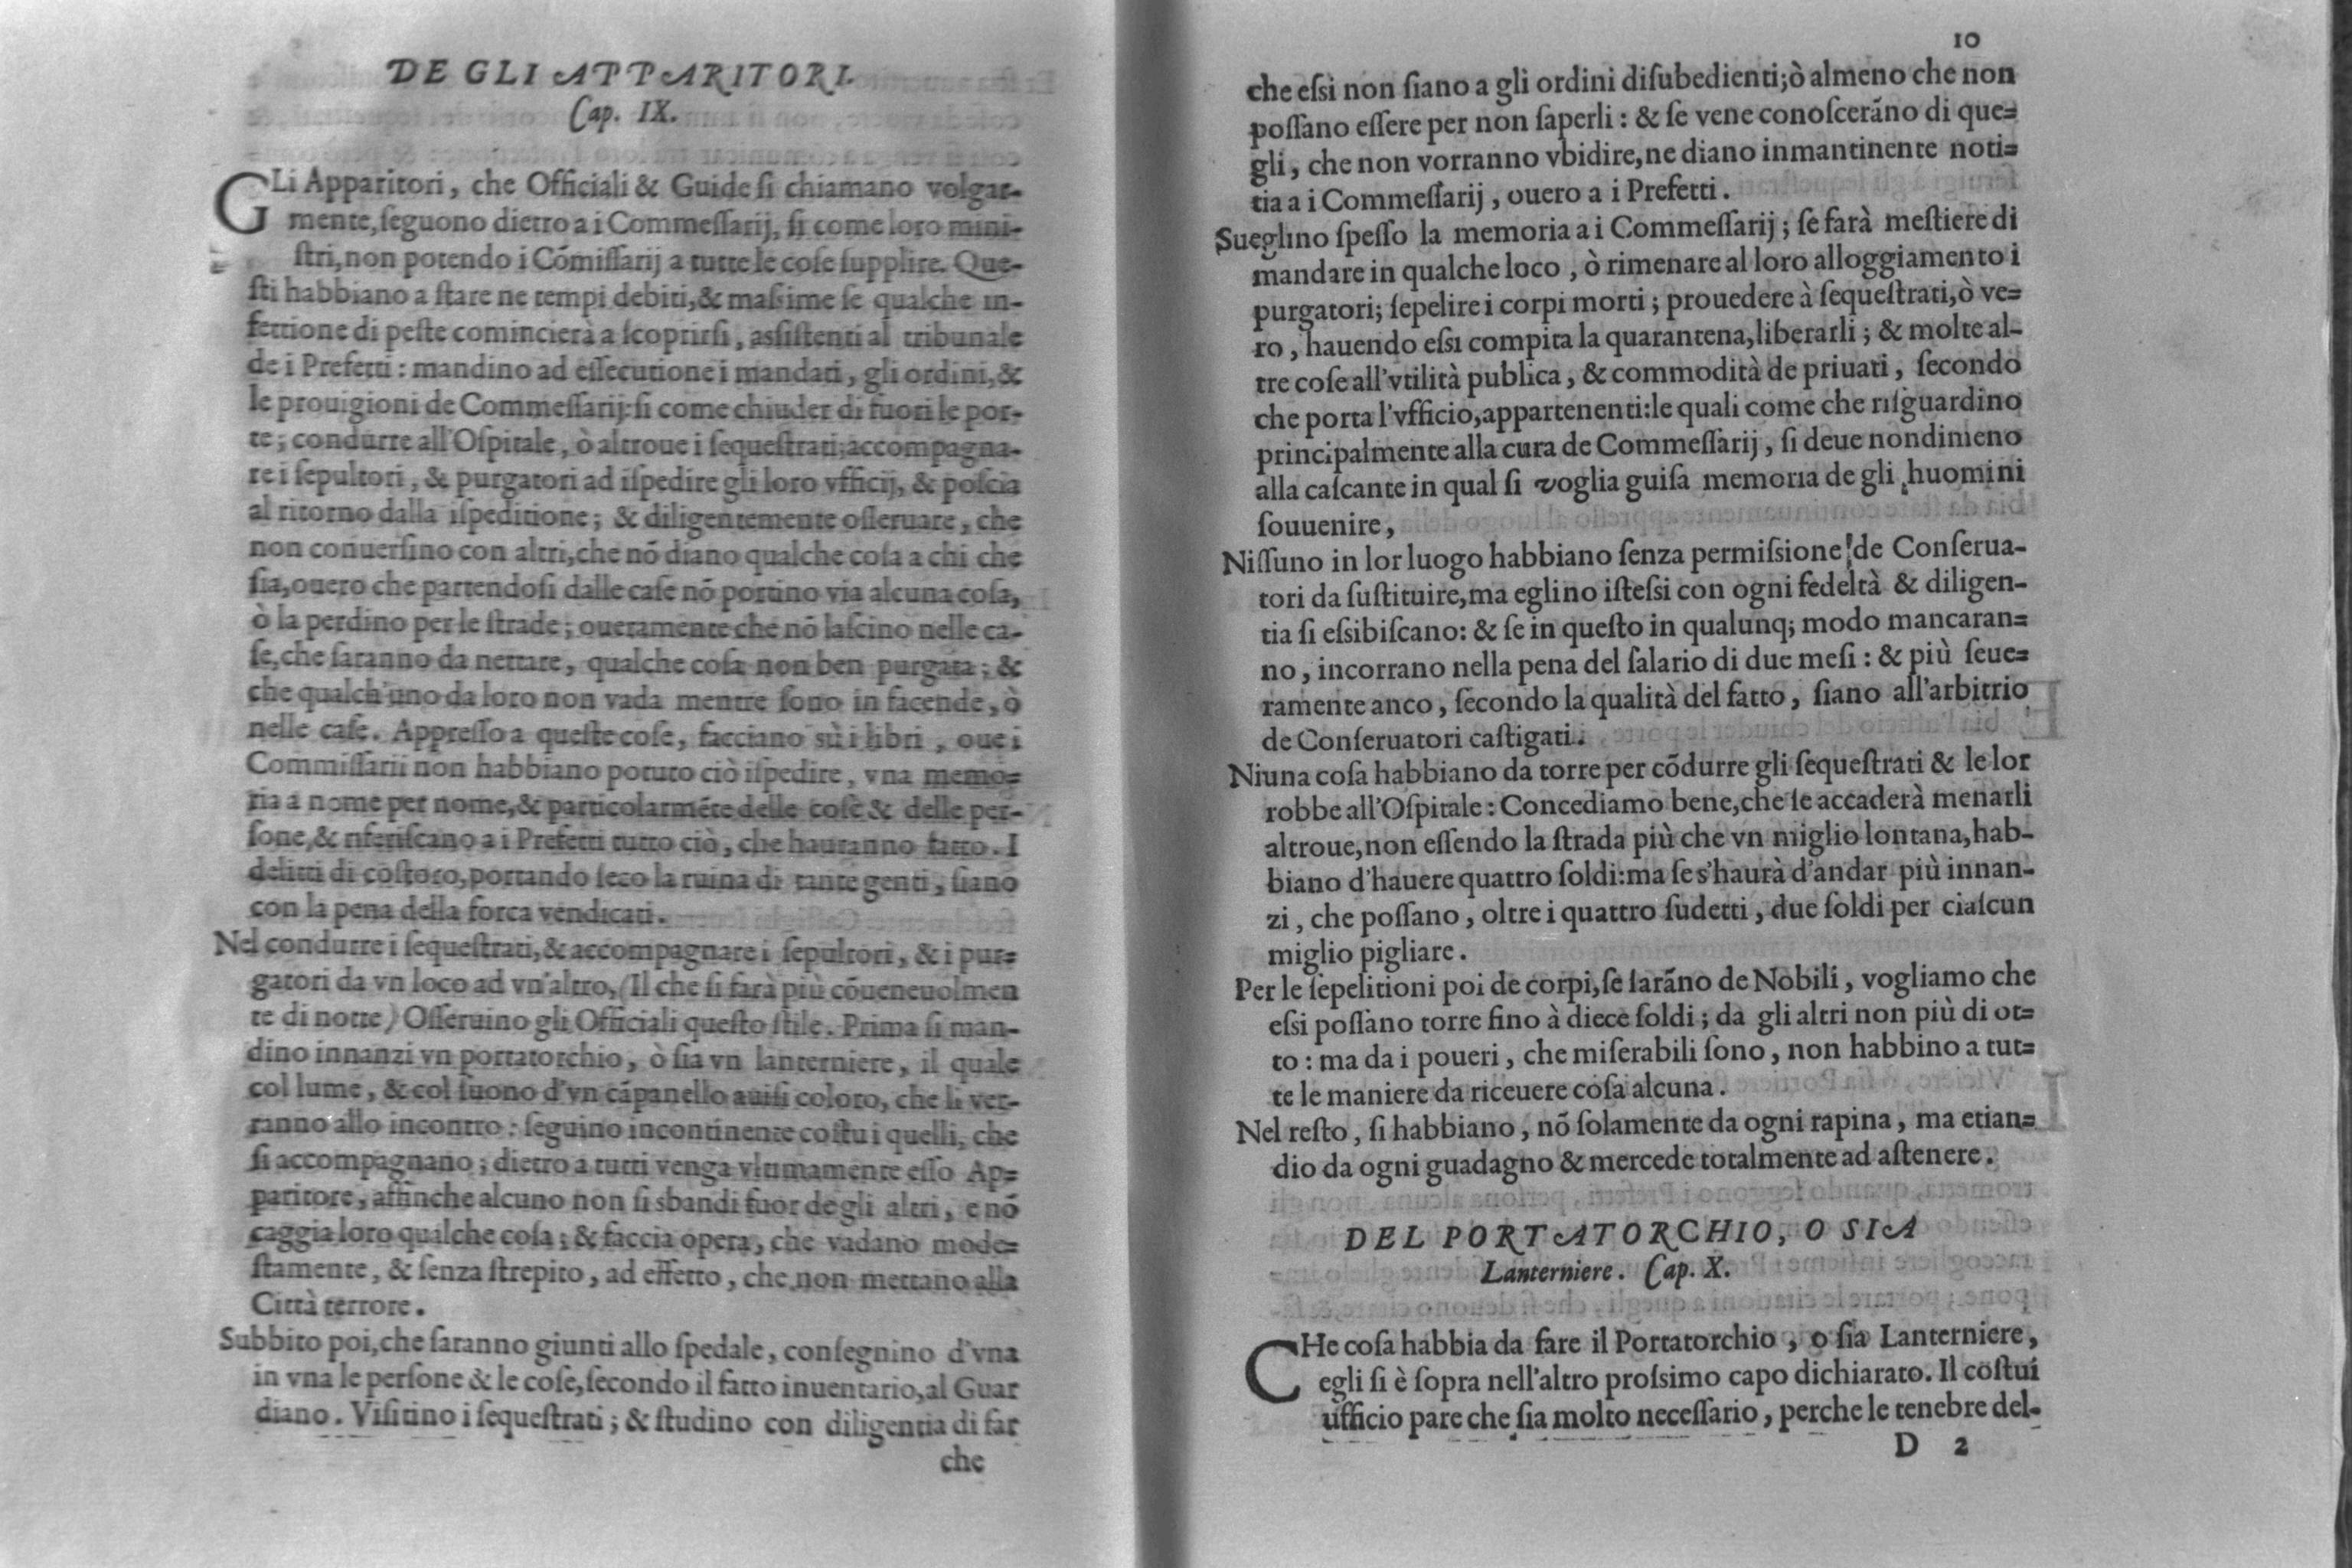 DE GLI APPARITORI.
Cap. IX.
GLi Apparitori, che Officiali & Guide ſi chiamano volgar-
mente, ſeguono dietro a i Commeſſarij, ſi come loro mini-
ſtri, non potendo i Cõmiſſarij a tutte le coſe ſupplire. Que-
ſti habbiano a ſtare ne tempi debiti, & maſsime ſe qualche in-
fettione di peſte comincierà a ſcoprirſi, aſsiſtenti al tribunale
de i Prefetti: mandino ad eſſecutione i mandati, gli ordini, &
le prouigioni de Commeſſarij: ſi come chiuder di fuori le por-
te; condurre all'Oſpitale, ò altroue i ſequeſtrati; accompagna-
re i ſepultori, & purgatori ad iſpedire gli loro vfficij, & poſcia
al ritorno dalla iſpeditione; & diligentemente oſſeruare, che
non conuerſino con altri, che nõ diano qualche coſa a chi che
ſia, ouero che partendoſi dalle caſe nõ portino via alcuna coſa,
ò la perdino per le ſtrade; oueramente che nõ laſcino nelle ca-
ſe, che ſaranno da nettare, qualche coſa non ben purgata; &
che qualch'uno da loro non vada mentre ſono in facende, ò
nelle caſe. Appreſſo a queſte coſe, facciano sù i libri, oue i
Commiſſarii non habbiano potuto ciò iſpedire, vna memo=
ria a nome per nome, & particolarmẽte delle coſe & delle per-
ſone, & riferiſcano a i Prefetti tutto ciò, che hauranno fatto. I
delitti di coſtoro, portando ſeco la ruina di tante genti, ſiano
con la pena della forca vendicati.
Nel condurre i ſequeſtrati, & accompagnare i ſepultori, & i pur=
gatori da vn loco ad vn'altro, (Il che ſi farà più cõueneuolmen
te di notte) Oſſeruino gli Officiali queſto ſtile. Prima ſi man-
dino innanzi vn portatorchio, ò ſia vn lanterniere, il quale
col lume, & col ſuono d'vn cãpanello auiſi coloro, che li ver-
ranno allo incontro: ſeguino incontinente coſtui quelli, che
ſi accompagnano; dietro a tutti venga vltimamente eſſo Ap=
paritore, affinche alcuno non ſi sbandi fuor de gli altri, e nõ
caggia loro qualche coſa; & faccia opera, che vadano mode=
ſtamente, & ſenza ſtrepito, ad effetto, che non mettano alla
Città terrore.
Subbito poi, che ſaranno giunti allo ſpedale, conſegnino d'vna
in vna le perſone & le coſe, ſecondo il fatto inuentario, al Guar
diano. Viſitino i ſequeſtrati; & ſtudino con diligentia di far
che
10
che eſsi non ſiano a gli ordini diſubedienti; ò almeno che non
poſſano eſſere per non ſaperli: & ſe vene conoſcerãno di que=
gli, che non vorranno vbidire, ne diano inmantinente noti=
tia a i Commeſſarij, ouero a i Prefetti.
Sueglino ſpeſſo la memoria a i Commeſſarij; ſe farà meſtiere di
mandare in qualche loco, ò rimenare al loro alloggiamento i
purgatori; ſepelire i corpi morti; prouedere à ſequeſtrati, ò ve=
ro, hauendo eſsi compita la quarantena, liberarli; & molte al-
tre coſe all'vtilità publica, & commodità de priuati, ſecondo
che porta l'vfficio, appartenenti: le quali come che riſguardino
principalmente alla cura de Commeſſarij, ſi deue nondimeno
alla caſcante in qual ſi voglia guiſa memoria de gli huomini
ſouuenire,
Niſſuno in lor luogo habbiano ſenza permiſsione de Conſerua-
tori da ſuſtituire, ma eglino iſteſsi con ogni fedeltà & diligen-
tia ſi eſsibiſcano: & ſe in queſto in qualunq; modo mancaran=
no, incorrano nella pena del ſalario di due meſi: & più ſeue=
ramente anco, ſecondo la qualità del fatto, ſiano all'arbitrio
de Conſeruatori caſtigati.
Niuna coſa habbiano da torre per cõdurre gli ſequeſtrati & le lor
robbe all'Oſpitale: Concediamo bene, che ſe accaderà menarli
altroue, non eſſendo la ſtrada più che vn miglio lontana, hab-
biano d'hauere quattro ſoldi: ma ſe s'haurà d'andar più innan-
zi, che poſſano, oltre i quattro ſudetti, due ſoldi per ciaſcun
miglio pigliare.
Per le ſepelitioni poi de corpi, ſe ſarãno de Nobili, vogliamo che
eſsi poſſano torre fino à diece ſoldi; da gli altri non più di ot=
to: ma da i poueri, che miſerabili ſono, non habbino a tut=
te le maniere da riceuere coſa alcuna.
Nel reſto, ſi habbiano, nõ ſolamente da ogni rapina, ma etian=
dio da ogni guadagno & mercede totalmente ad aſtenere.
DEL PORTATORCHIO, O SIA
Lanterniere. Cap. X.
CHe coſa habbia da fare il Portatorchio, o ſia Lanterniere,
egli ſi è ſopra nell'altro proſsimo capo dichiarato. Il coſtui
ufficio pare che ſia molto neceſſario, perche le tenebre del-
D 2